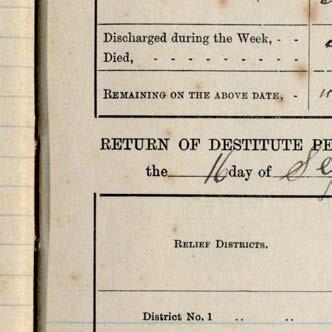 Discharged during the Week, - -
Died, - - - - - - - -
REMAINING ON THE ABOVE DATE, -
RETURN OF DESTITUTE PE
the 16 day of Se
RELIEF DISTRICTS.
District No. 1 .. ..